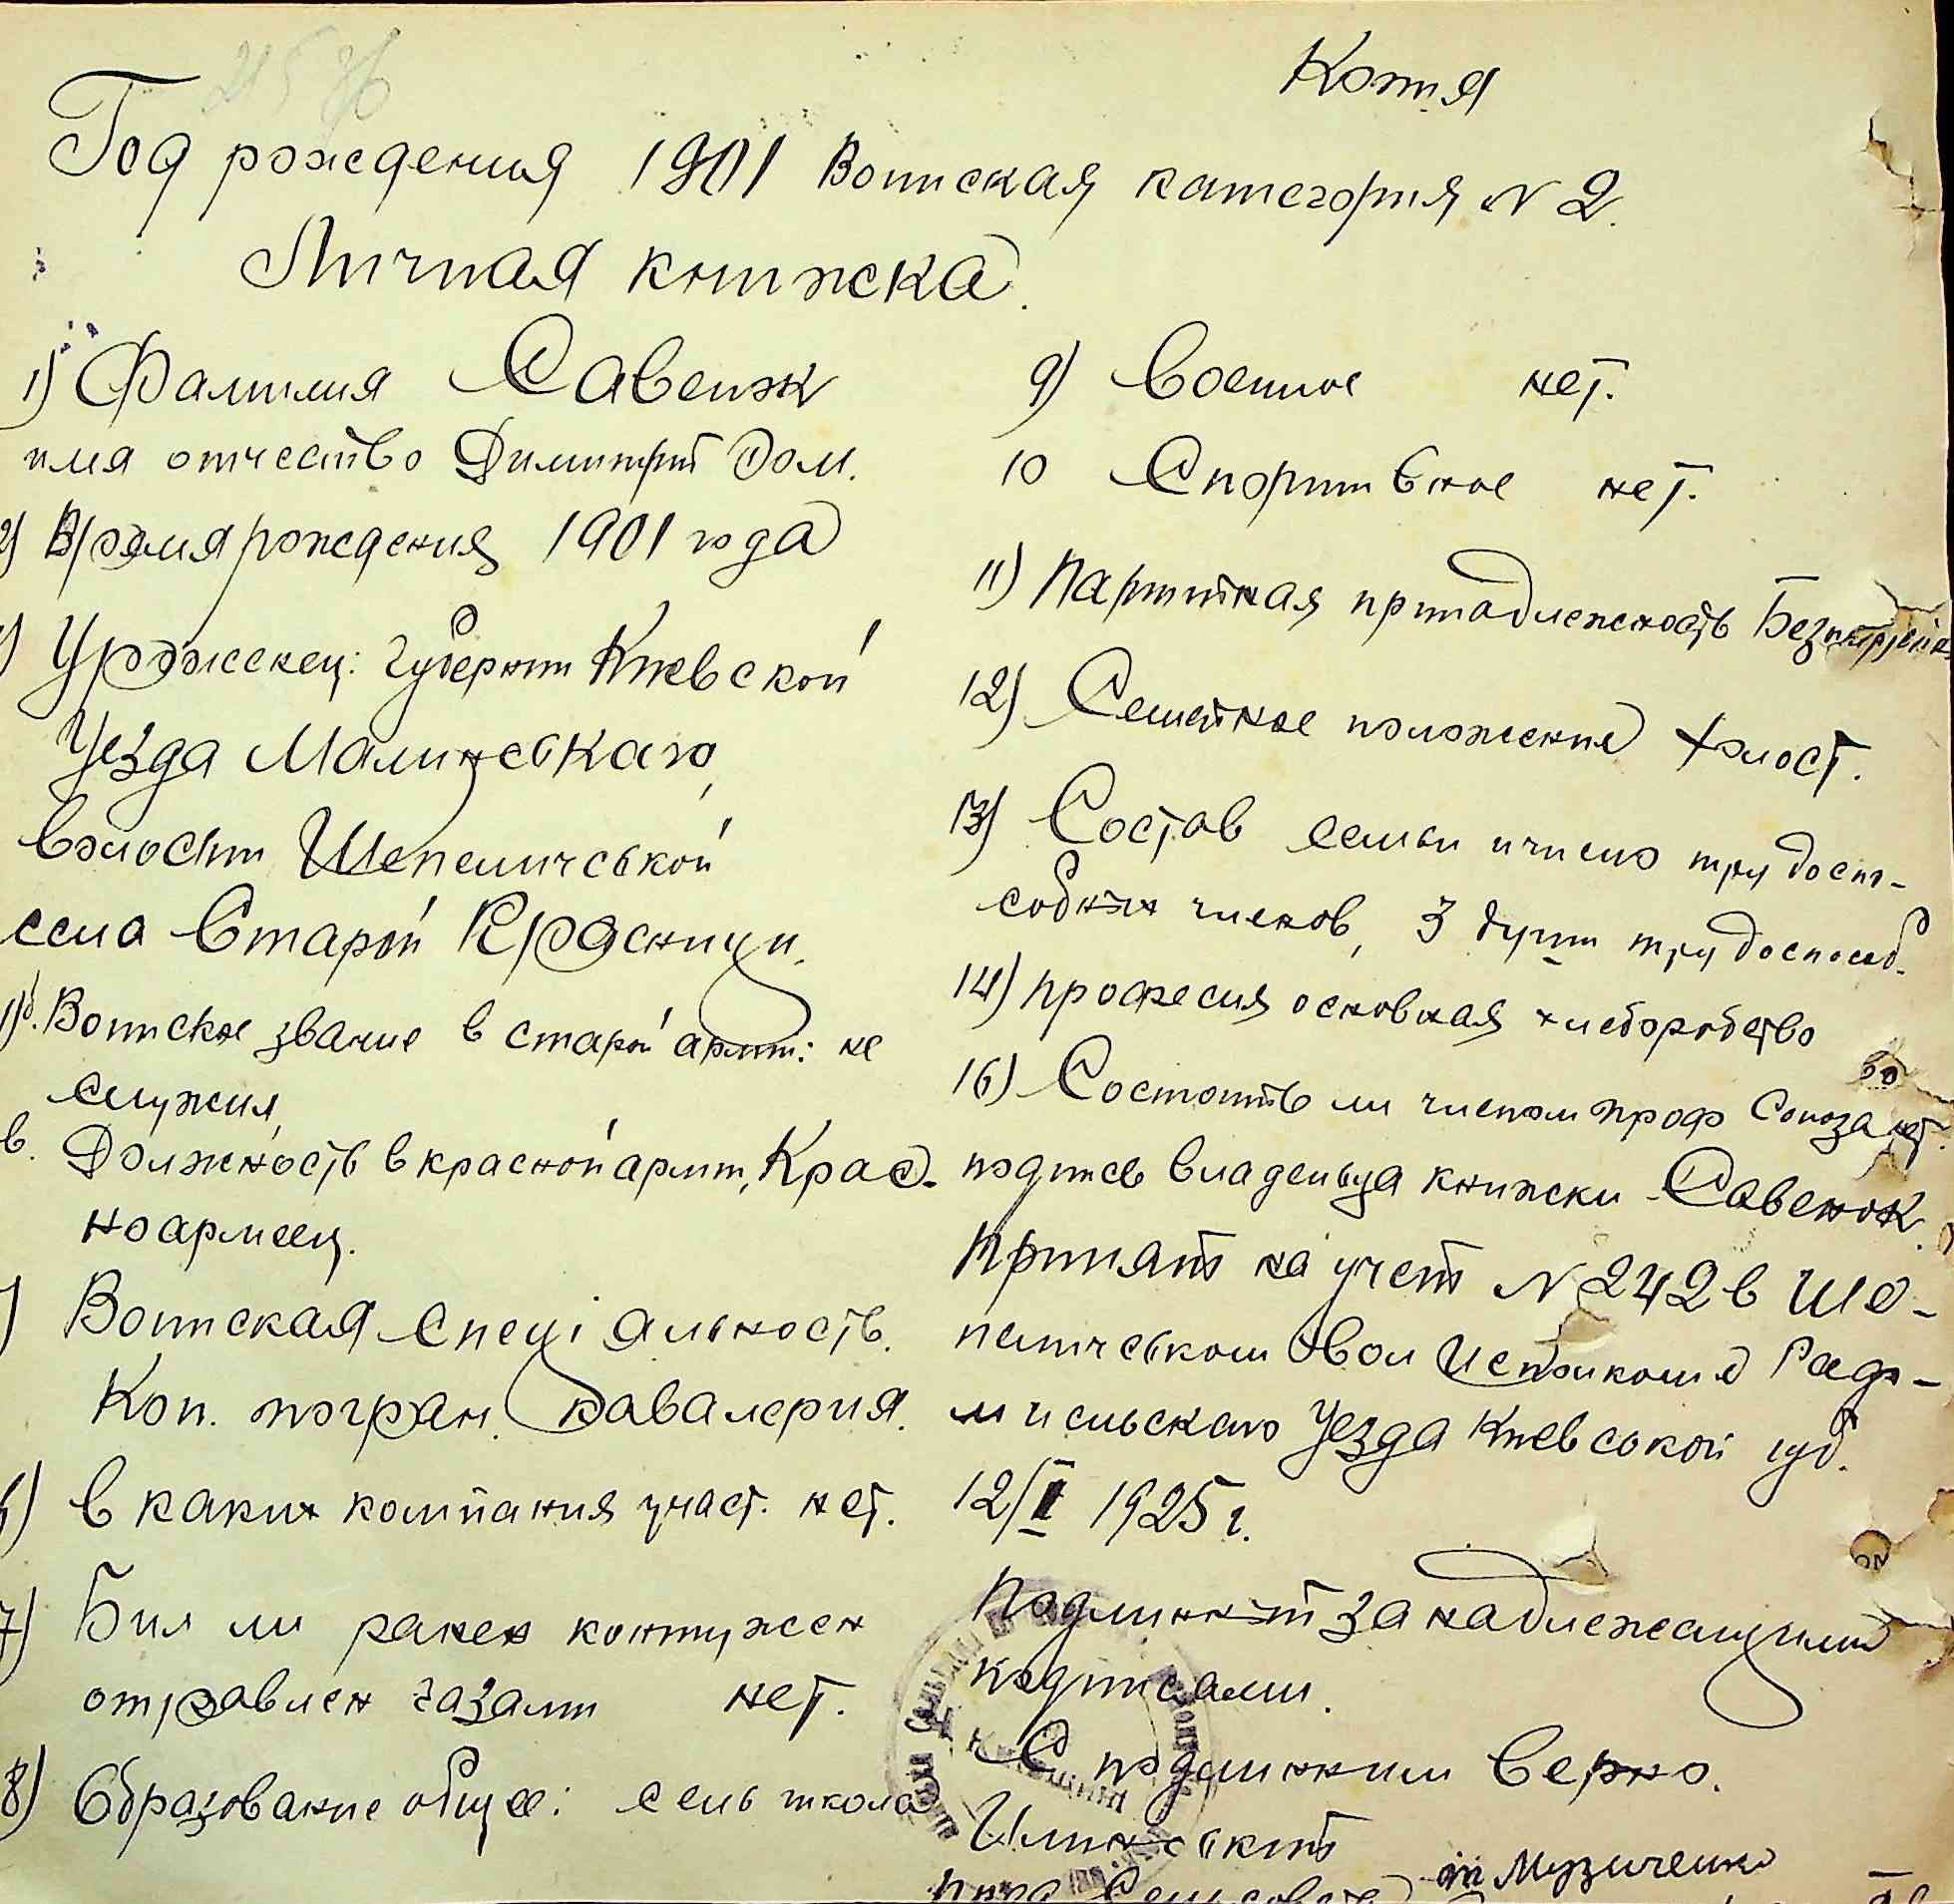 Копия
Год рождения 1901 Воинская категория N 2.
Личная книжка.
1) Фамилия Савенок
имя отчество Димитрий Дом.
2) Время рождения 1901 года
Уроженец: губернии Киевской
Уезда Малинськаго,
волости Шепеличськой
села Старой Красници.
Воинское звание в старой армии: не
служил,
в. Должность в красной армии, Крас-
ноармеец.
Воинская специальность.
Коп. погран. кавалерия.
6) в каких компания участ. нет.
7) Бил ли ранен контужен
отравлен газами нет.
8) Образование общее: сель школа
9) Военное нет.
10 Спортивное нет.
11) Партийная принадлежность Безпартейн
12) Семейное положение холост.
13) Состав семьи и число трудоспо-
собних членов, 3 души трудоспособ.
14) професия основная хлеборобство
16) Состоить ли членом проф Союза нет.
подпись владельца книжки Савенок.
Принят на учет N 242 в Ше-
пеличськом Вол Исполкоме Радо-
мисльскаго Уезда Киевськой губ.
12/I 1925 г.
Подлинний за надлежащими
подписами.
С подлинним верно.
Музиченко